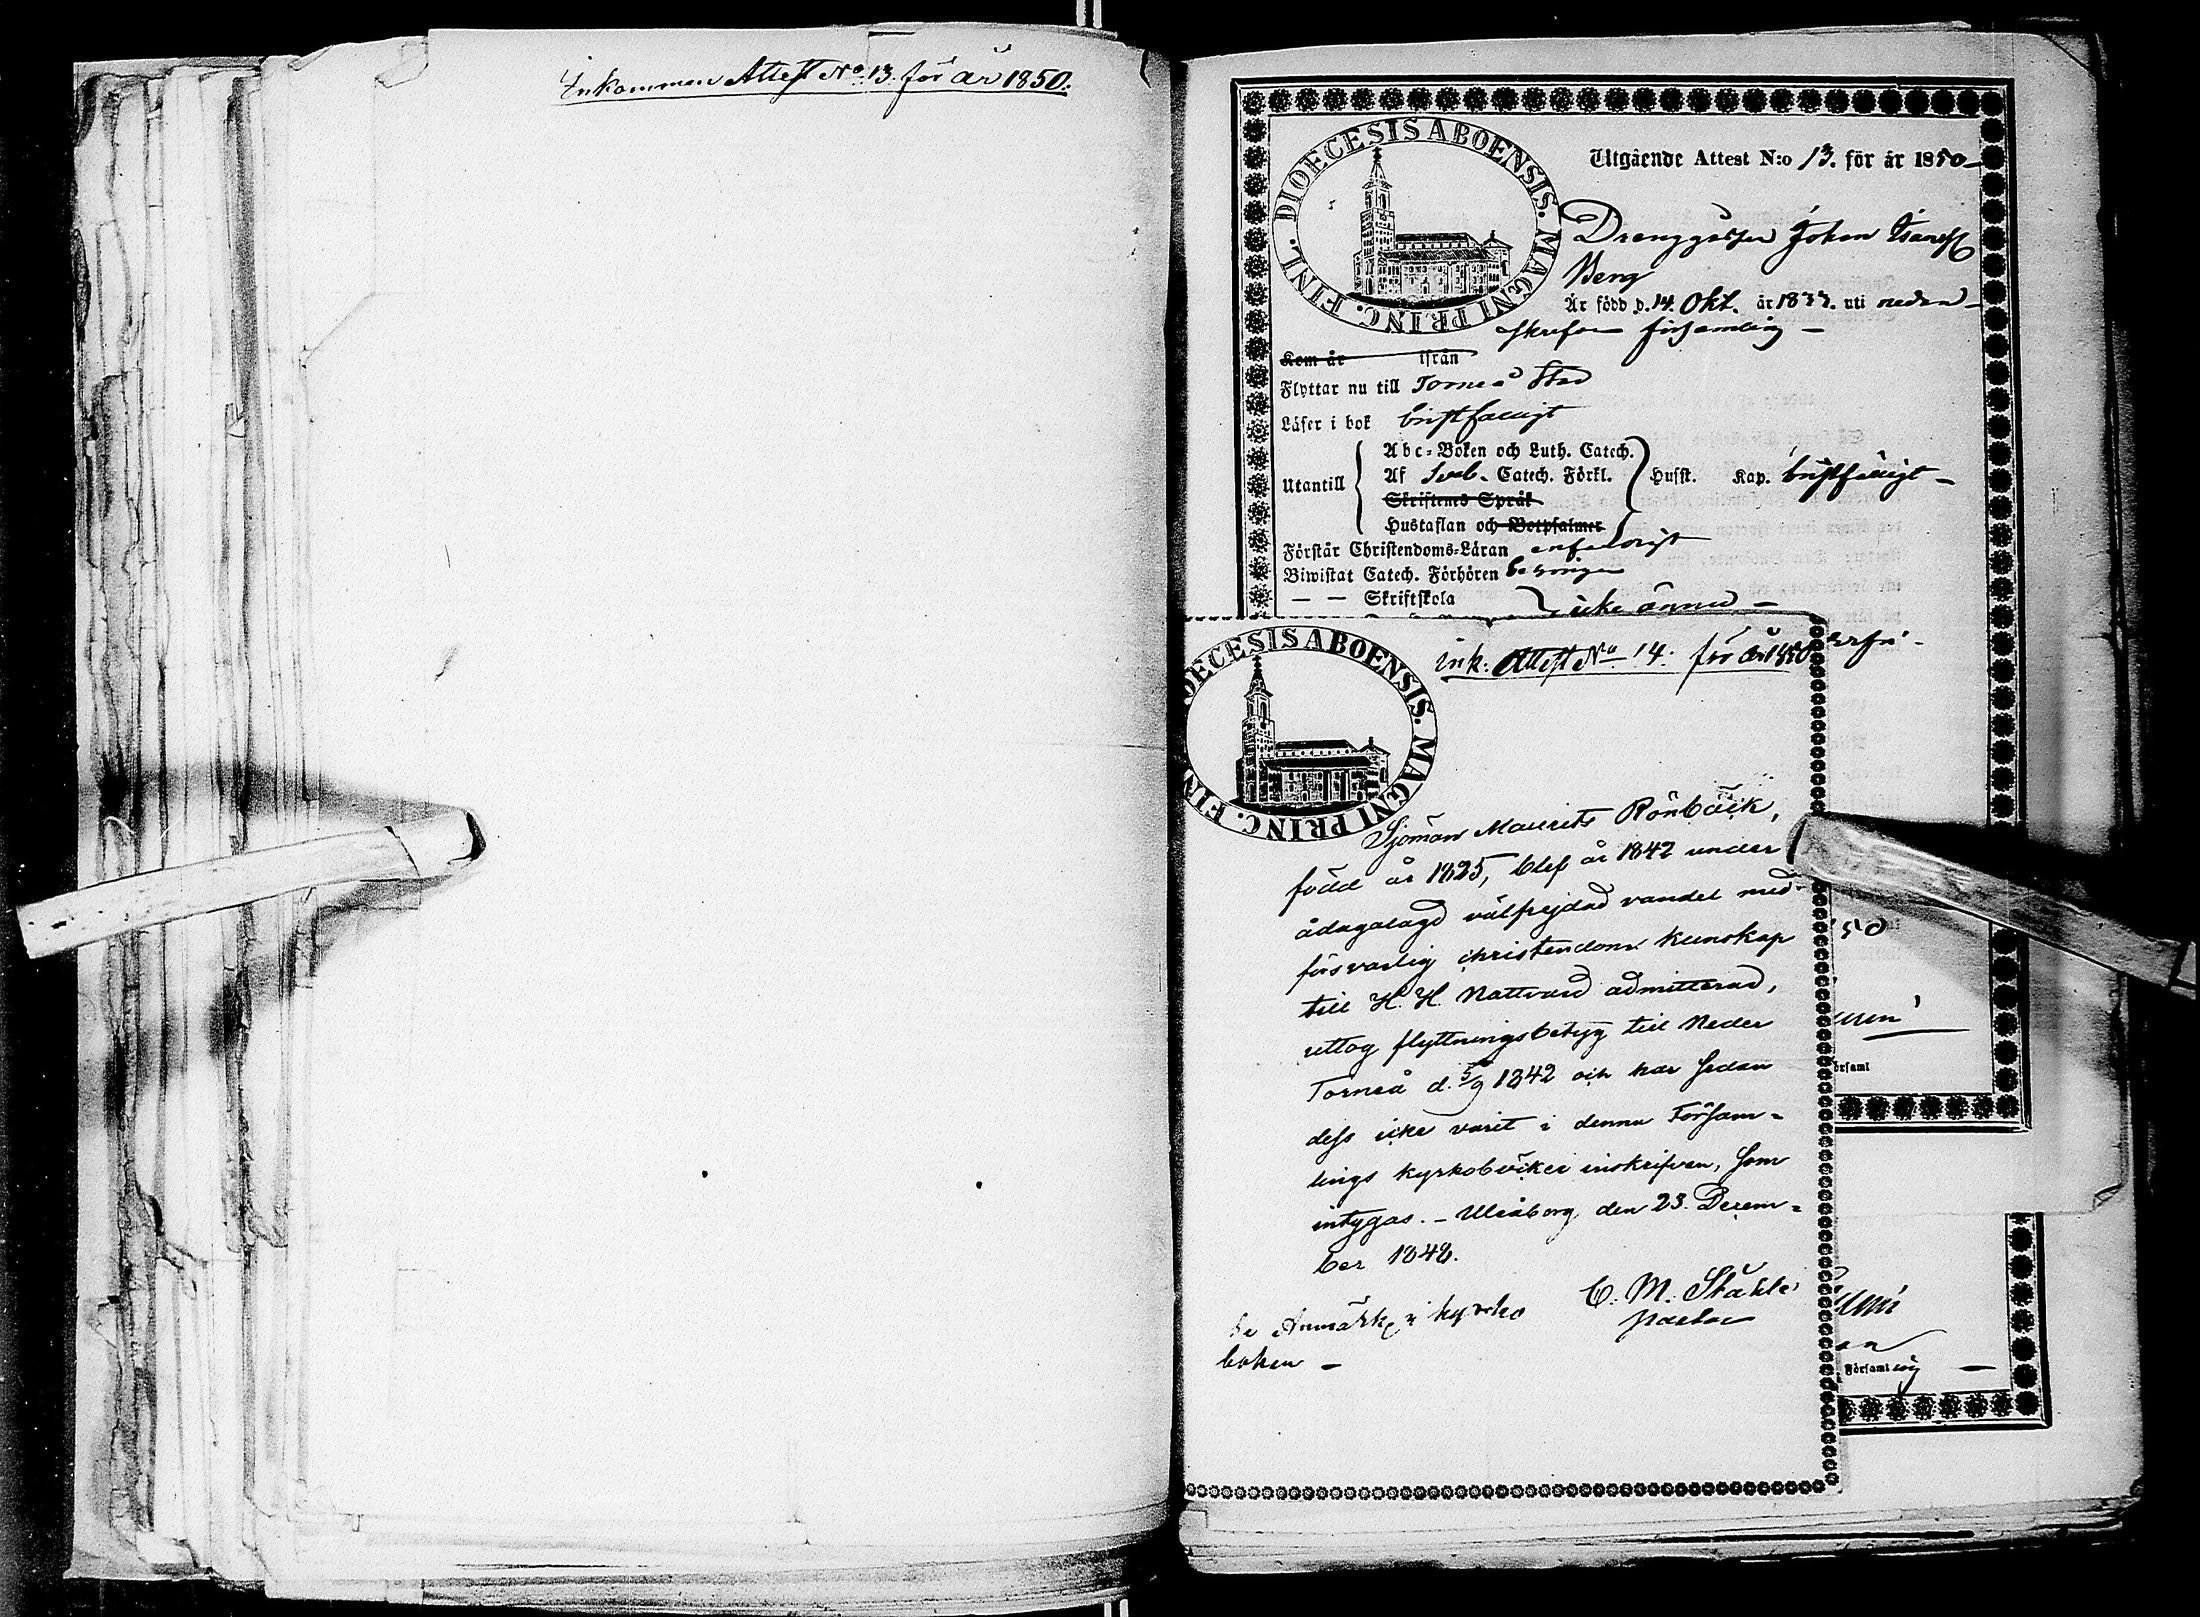 Inkommen Attest No 13. för år 1850.
DIOECESIS ABOENSIS. MAGNI PRINC. FINL.
Utgående Attest N:o 13. för år 1850
Drenggåssen Johan
Berg
Är född d. 14. Okt. år 1833. uti nedan-
skrefne församling
Kom år ifrån
Flyttar nu till Torneå Stad
Läser i bok bristfälligt
Abc-Boken och Luth. Catech.
Utantill Af Sveb. Catech. Förkl. Husst. Kap. bristfälligt
Skriftenes Språk
Hustaflan och Botpsalmer
Förstår Christendoms-Läran enfaldigt
Biwistat Catech. Förhören
— — Skriftskola icke ännu
DIOECESIS ABOENSIS. MAGNI PRINC. FIN
Ink. Attest No 14. för år 1850
Sjöman Maurits Rönbäck,
född år 1825, blef år 1842 under
ådagalagd välfrejdad vandel med
försvarlig christendoms kunskap
till H. H. Nattvard admitterad,
uttog flyttningsbetyg till Neder
Torneå d. 5/9 1842 och har sedan
dess icke varit i denna Försam=
lings kyrkoböcker inskrifven, som
intygas. - Uleåborg den 23. Decem=
ber 1848.
C. M. Ståhle
pastor
Se Anmärkn i kyrko
boken -
50
örsaml
Församling